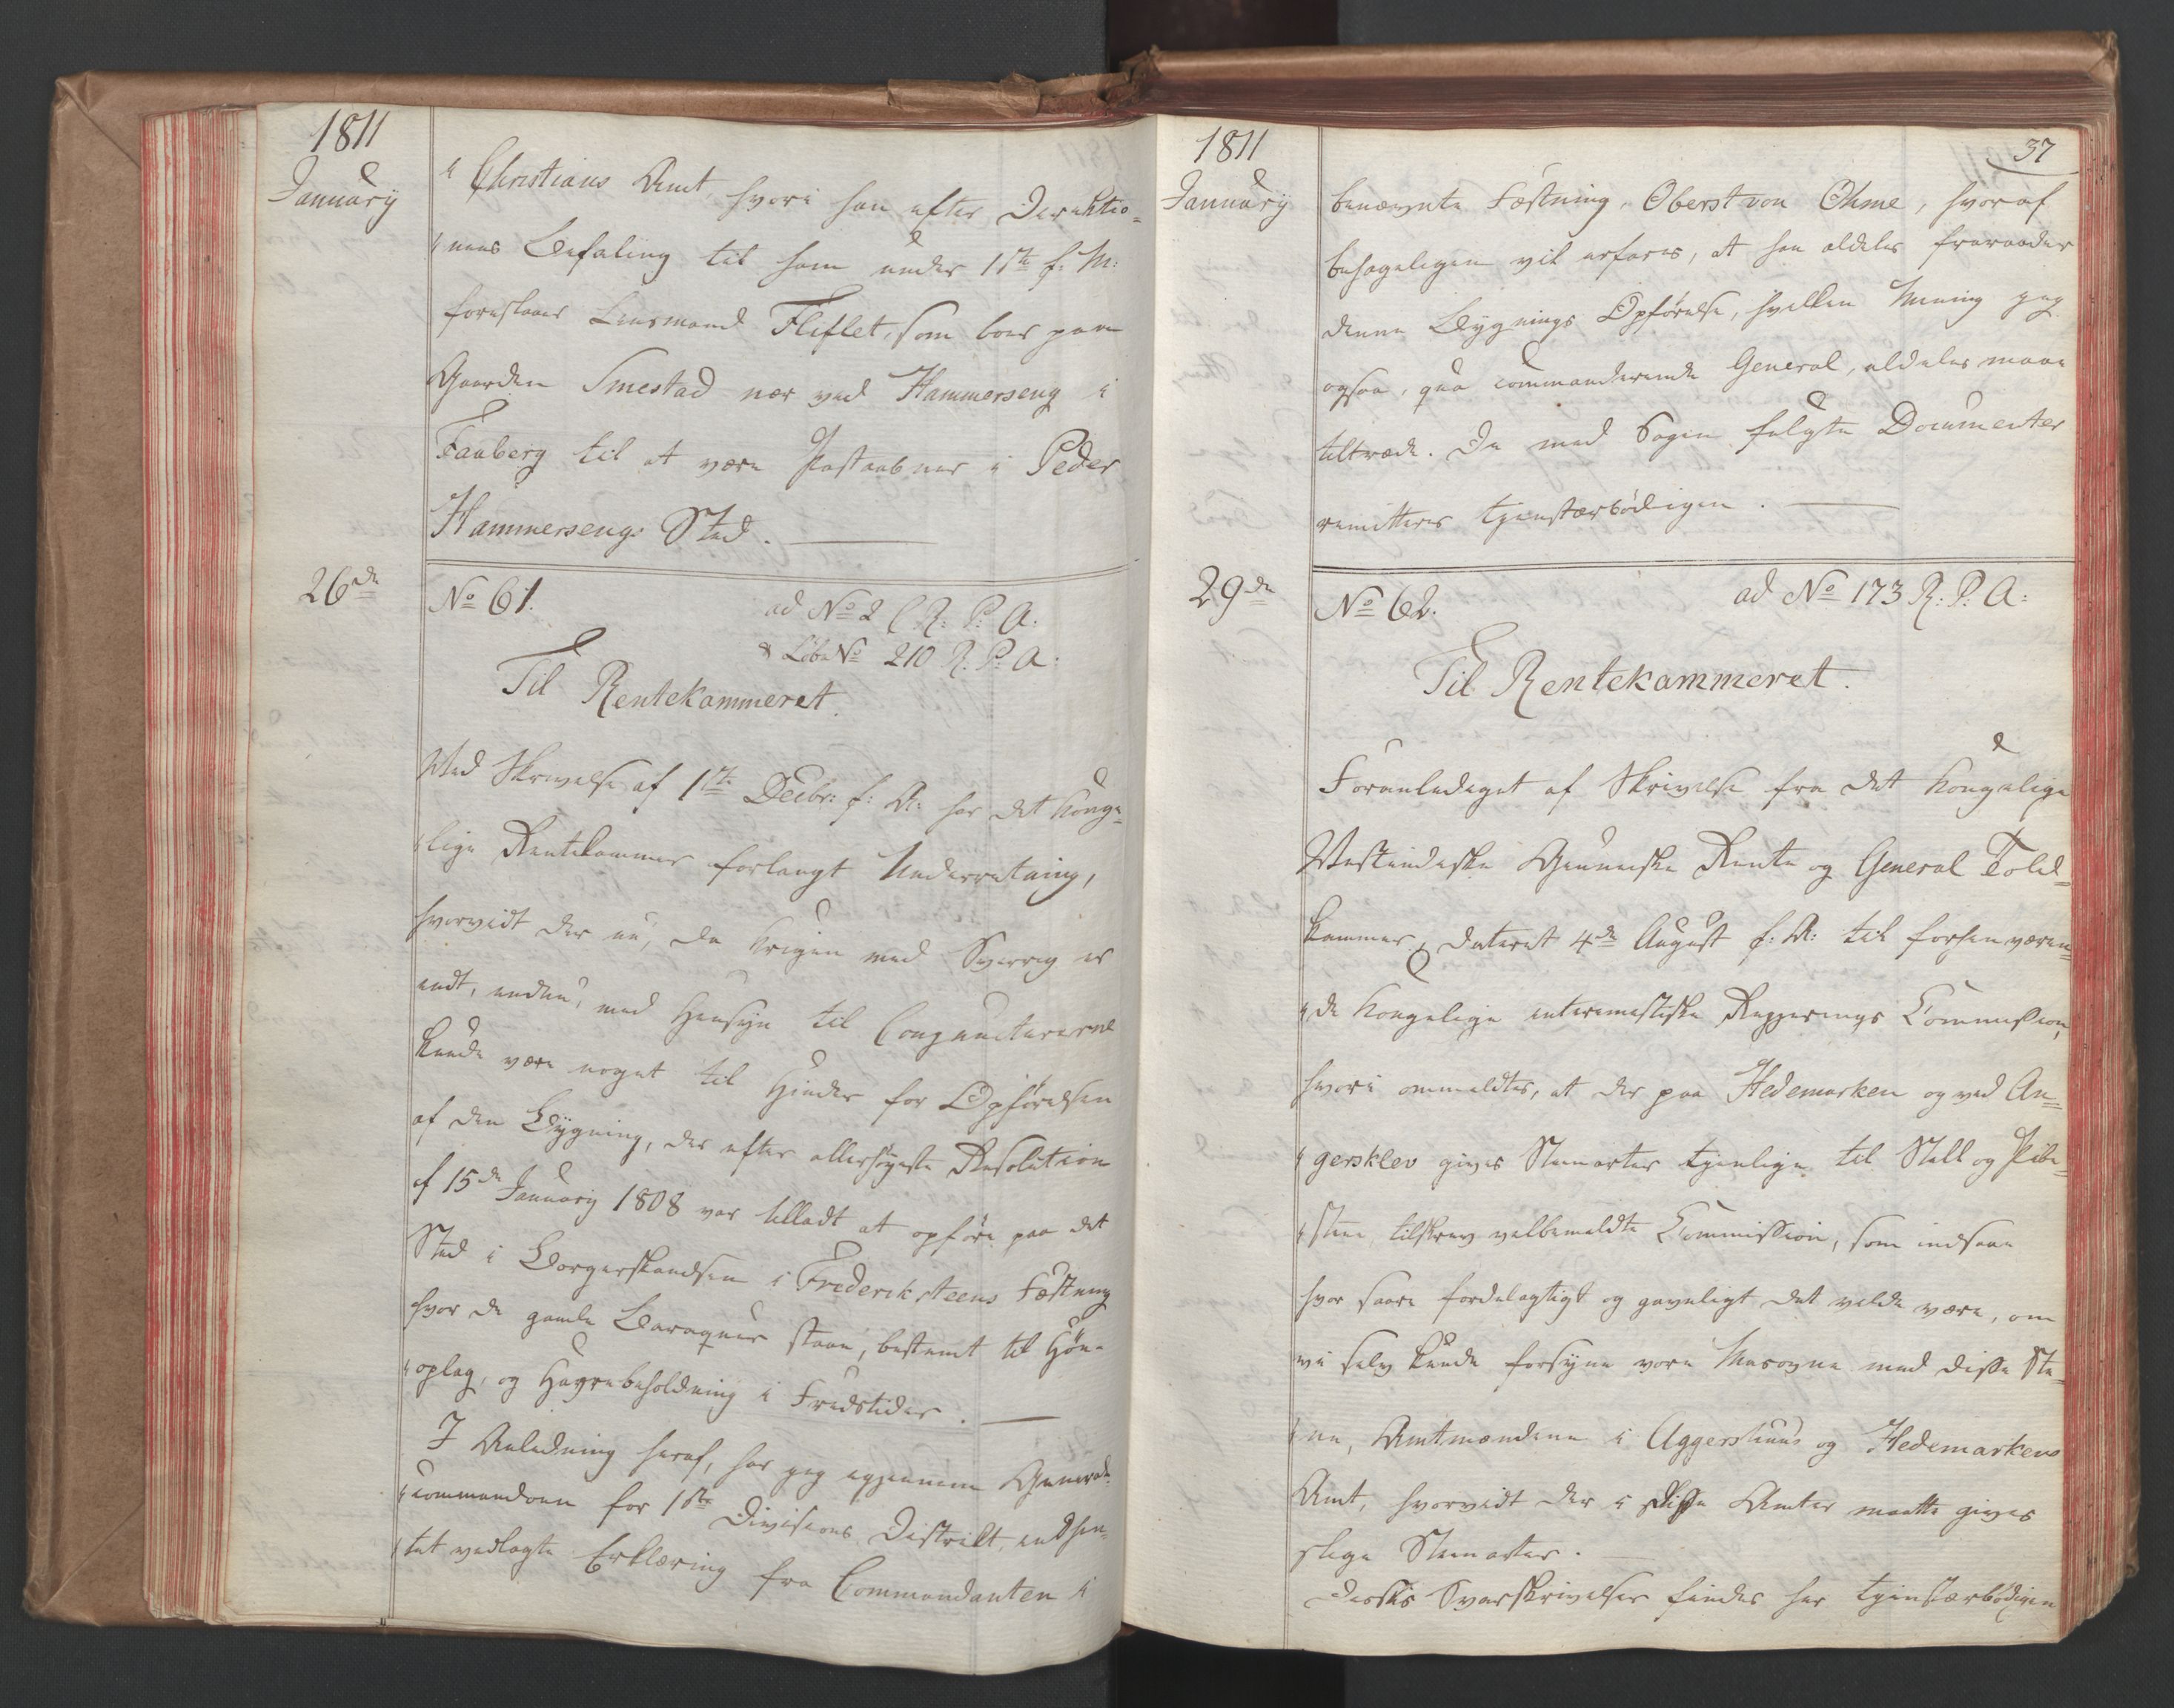 1811
January
" Christians Amt, hvori han efter Direktio-
"nens Befaling til ham under 11te f: M:
foreslaaer Lensmand Fliflet, som boer paa
Gaarden Smestad nær ved Hammerseng i
Faaberg til at være Postaabner i Peder
Hammersengs Sted.
26de
No 61.
ad No 2 C. R: P: A:
& Løbe No 210 R: P: A:
Til Rentekammeret.
Ved Skrivelse af 1ste Decbr: f: A: har det Konge-
"lige Rentekammer forlangt Underretning,
hvorvidt der nu, da Krigen med Sverrig er
endt, endnu, med Hensyn til Conjuncturerne
kunde være noget til Hinder for Opførelsen
af den Bygning, der efter allerhøyeste Resolution
af 15de Januarij 1808 var tilladt at opføre paa det
Sted i Borgerskandsen i Frederiksteens Fæstning
hvor de gamle Baraquer staae, bestemt til Høe-
"oplag, og Havrebeholdning i Fredstider.
I Anledning heraf, har jeg igjennem General-
"commandoen for 1ste Divisions District, indhen-
"tet vedlagte Erklæring fra Commandanten i
1811
January
37
benævnte Fæstning, Oberst von Ohme, hvoraf
behageligen vil erfares, at han aldeles fraraader
denne Bygnings Opførelse, hvilken Mening jeg
ogsaa, qua commanderende General, aldeles maae
tiltræde. De med Sagen fulgte Documenter
remitteres tjenstærbødigen.
29de
No 62.
ad No 173 R: P: A:
Til Rentekammeret.
Foranlediget af Skrivelse fra det Kongelige
Vestindiske Guineiske Rente og General Told-
kammer, dateret 4de August f: A: til forhenværen-
"de Kongelige interimistiske Regjerings Commission,
hvori ommeldtes, at der paa Hedemarken og ved An-
"gersklev gives Steenarter tjenlige til Stell og Pibe-
"stene, tilskrev velbemeldte Commission, som indsaae
hvor saare fordelagtigt og gavnligt det vilde være, om
vi selv kunde forsyne vore Mesogne med disse Ste-
"ne, Amtmændene i Aggershuus og Hedemarkens
Amt, hvorvidt der i disse Amter maatte gives
slige Steenarter.
Disses Svarskrivelser findes her tjenstærbødigen